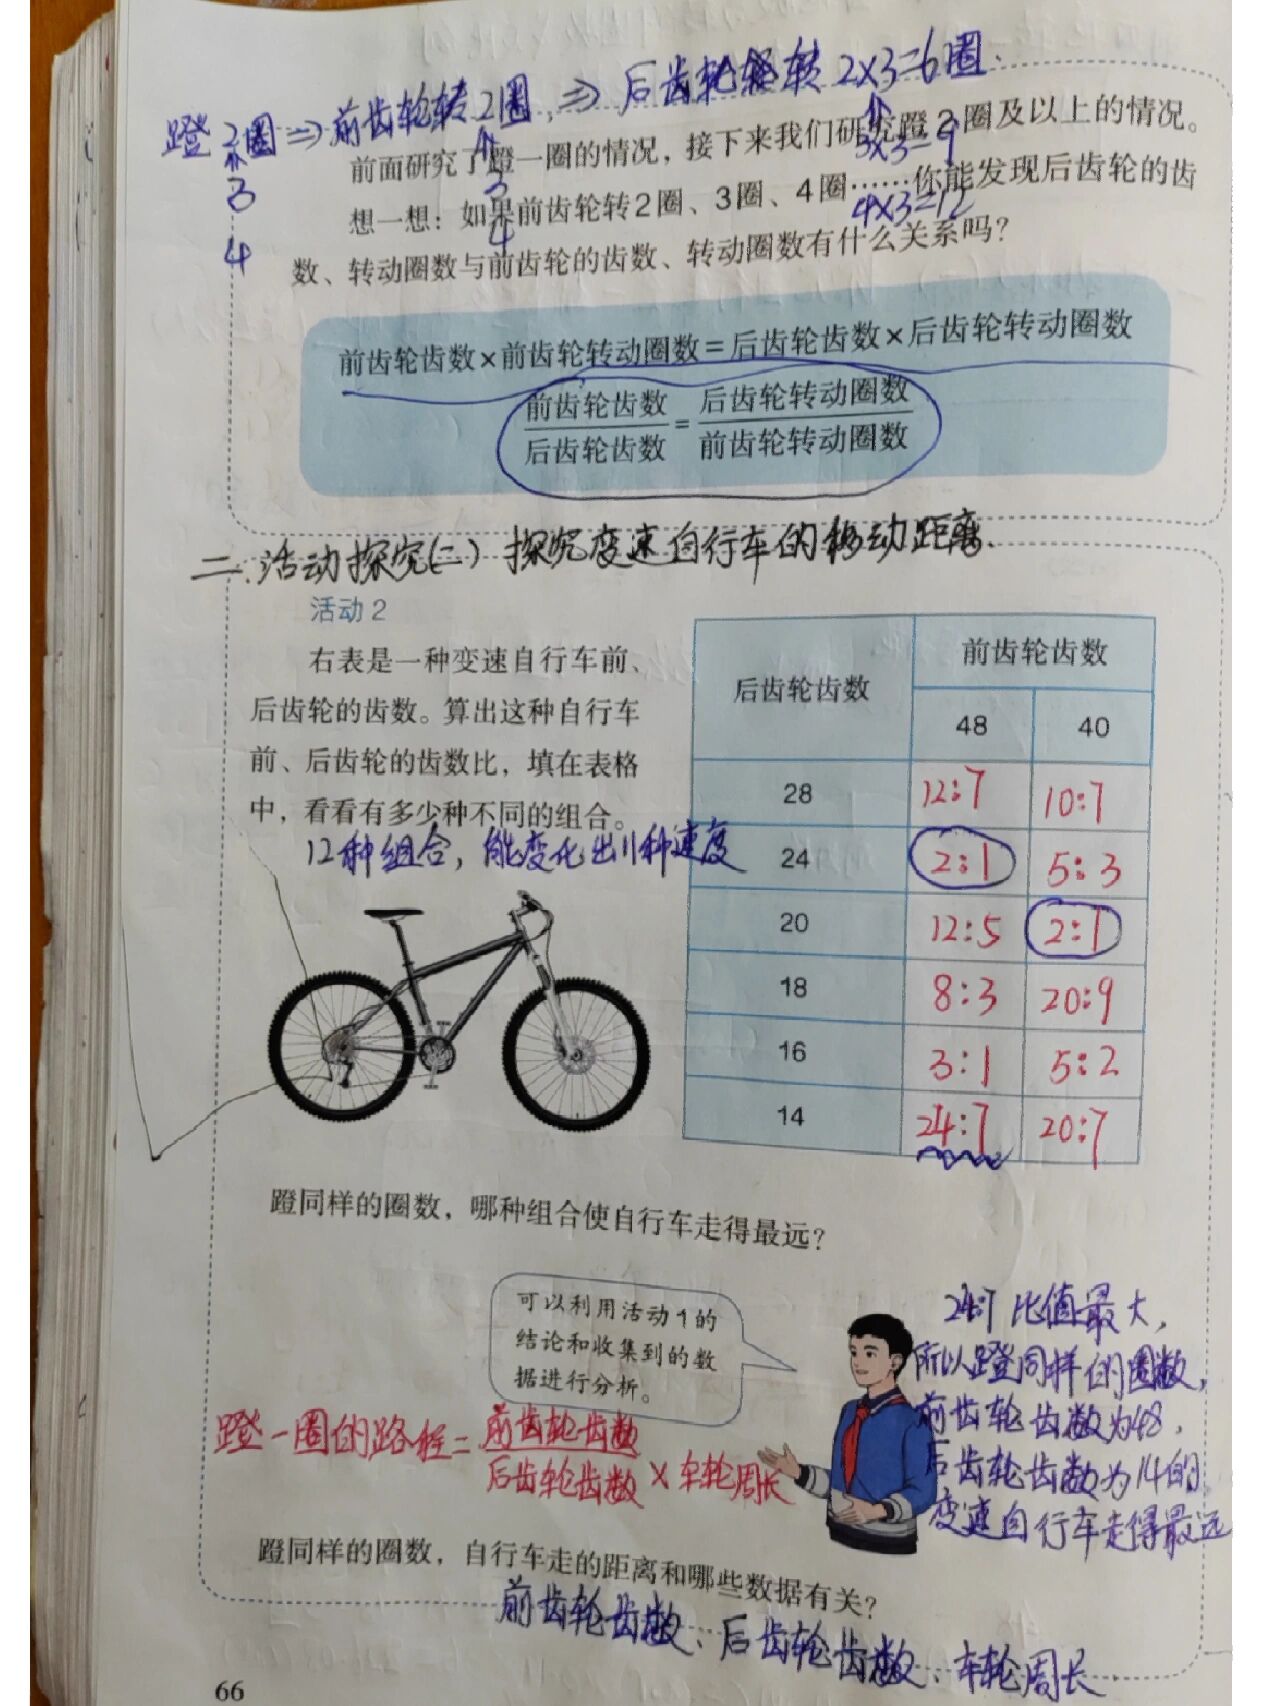 蹬2圈⇒前齿轮转2圈,⇒后齿轮转2×3=6圈.
3 3 3×3=9
4 4 4×3=12
前面研究了蹬一圈的情况，接下来我们研究蹬2圈及以上的情况。
想一想：如果前齿轮转2圈、3圈、4圈……你能发现后齿轮的齿
数、转动圈数与前齿轮的齿数、转动圈数有什么关系吗？
前齿轮齿数×前齿轮转动圈数=后齿轮齿数×后齿轮转动圈数
前齿轮齿数/后齿轮齿数=后齿轮转动圈数/前齿轮转动圈数
二.活动探究(二) 探究变速自行车的移动距离.
活动2
右表是一种变速自行车前、
后齿轮的齿数。算出这种自行车
前、后齿轮的齿数比，填在表格
中，看看有多少种不同的组合。
12种组合，能变化出11种速度
后齿轮齿数 前齿轮齿数
48 40
28 12:7 10:7
24 2:1 5:3
20 12:5 2:1
18 8:3 20:9
16 3:1 5:2
14 24:7 20:7
蹬同样的圈数，哪种组合使自行车走得最远？
可以利用活动1的
结论和收集到的数
据进行分析。
24:7比值最大，
所以蹬同样的圈数，
前齿轮齿数为48，
后齿轮齿数为14的
变速自行车走得最远
蹬一圈的路程=前齿轮齿数/后齿轮齿数×车轮周长
蹬同样的圈数，自行车走的距离和哪些数据有关？
前齿轮齿数、后齿轮齿数、车轮周长
66